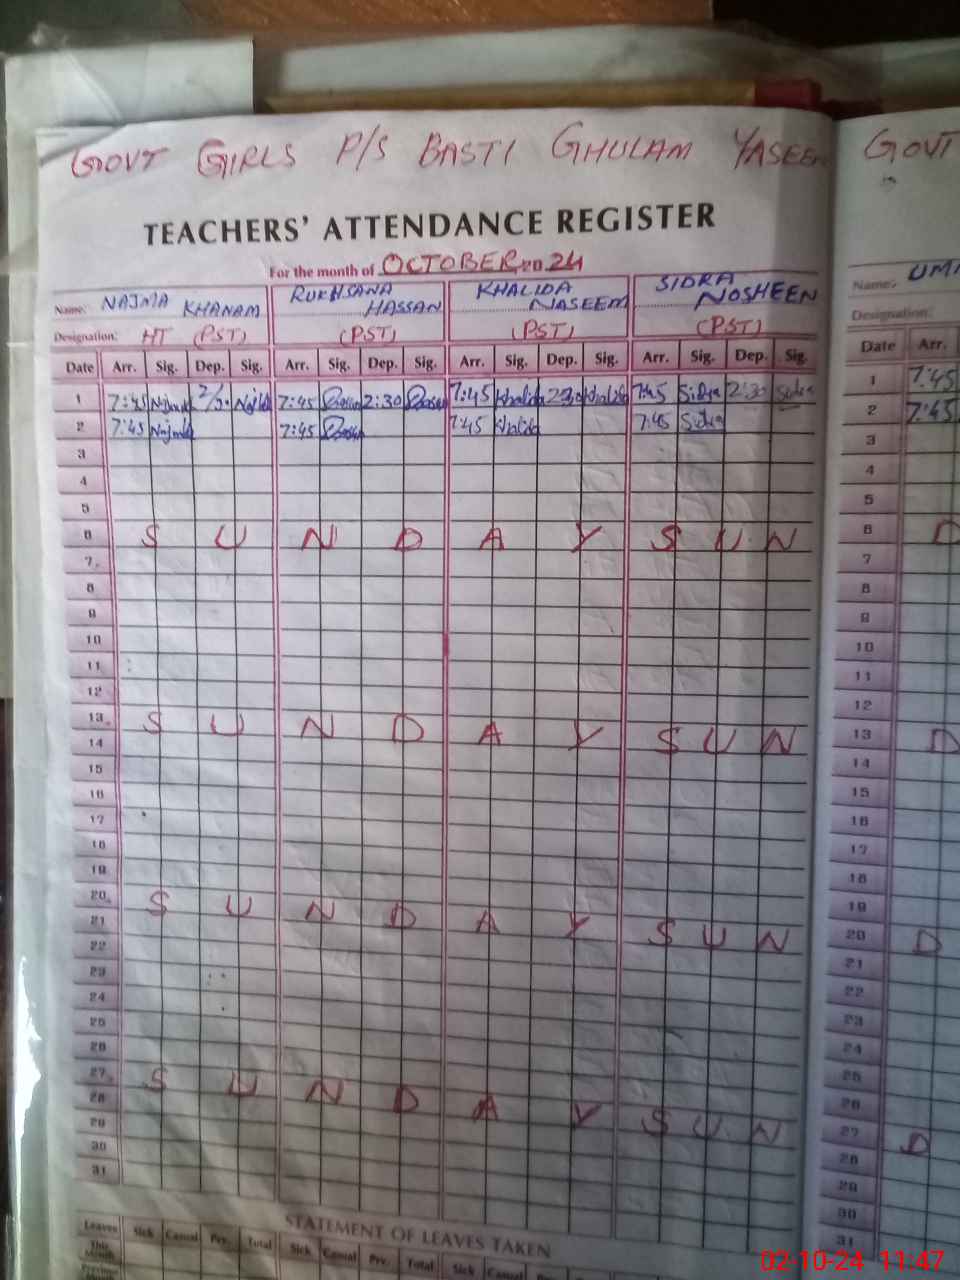 GOVT GIRLS P/S BASTI GHULAM YASEEN GOVT
TEACHERS' ATTENDANCE REGISTER
For the month of OCTOBER 20 24
Name: NAJMA KHANAM RUKHSANA HASSAN KHALIDA NASEEM SIDRA NOSHEEN
Designation: HT (PST) (PST) (PST) (PST)
Date Arr. Sig. Dep. Sig. Arr. Sig. Dep. Sig. Arr. Sig. Dep. Sig. Arr. Sig. Dep. Sig.
1 7:45 Najma 7:45 2:30 7:45 Khalida 2:30 Khalida 7:45 Sidra 2:30 Sidra
2 7:45 Najma 7:45 7:45 Khalida 7:45 Sidra
3
4
5
6 S U N D A Y S U N
7
8
9
10
11
12
13 S U N D A Y S U N
14
15
16
17
18
19
20 S U N D A Y S U N
21
22
23
24
25
26
27 S U N D A Y S U N
28
29
30
31
STATEMENT OF LEAVES TAKEN
Leaves Sick Casual Prv. Total Sick Casual Prv. Total Sick Casual
This Month
Previous
Name:
Designation:
Date Arr.
1 7:45
2 7:45
3
4
5
6 D
7
8
9
10
11
12
13 D
14
15
16
17
18
19
20 D
21
22
23
24
25
26
27 D
28
29
30
31
02-10-24 11:47